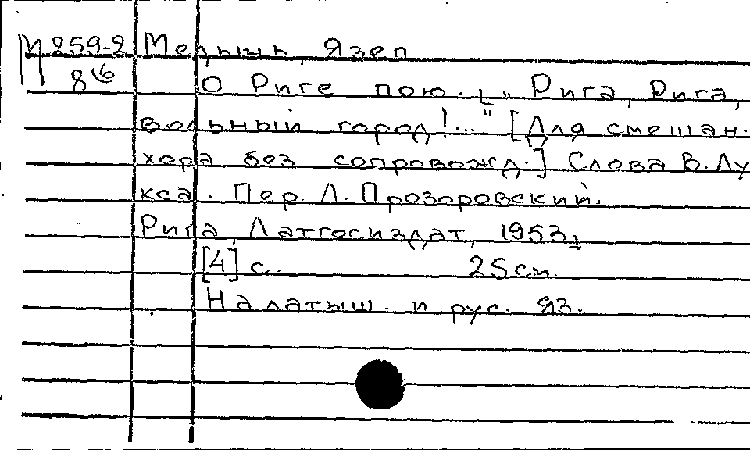 М 259-2 Медынь, Язеп
8(6 О Риге пою. [„Рига, Рига,
вольный город!..." [Для смешан.
хора без сопровожд.] Слова В. Лу
кса. Пер. Л. Прозоровский.
Рига, Латгосиздат, 1953,
[4] с. 25 см.
На латыш. и рус. яз.